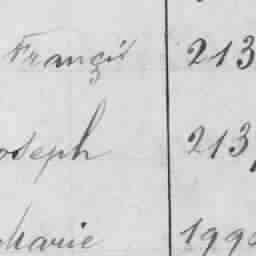 Françis 213
oseph 213,
Marie 199